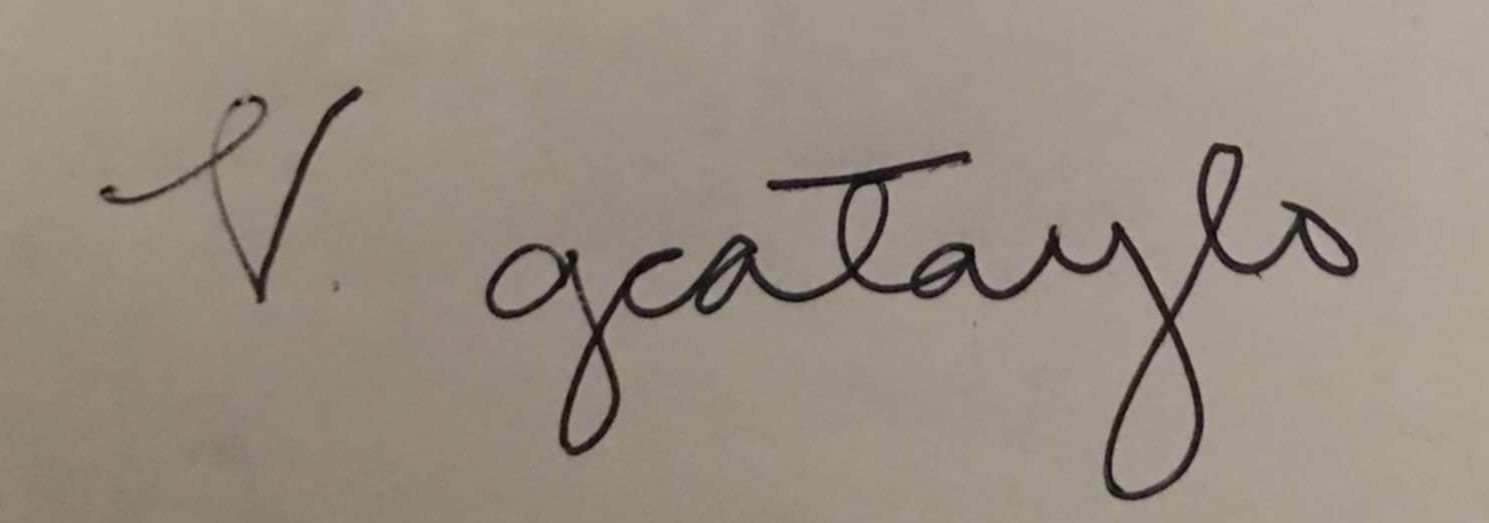 V. gcataylo